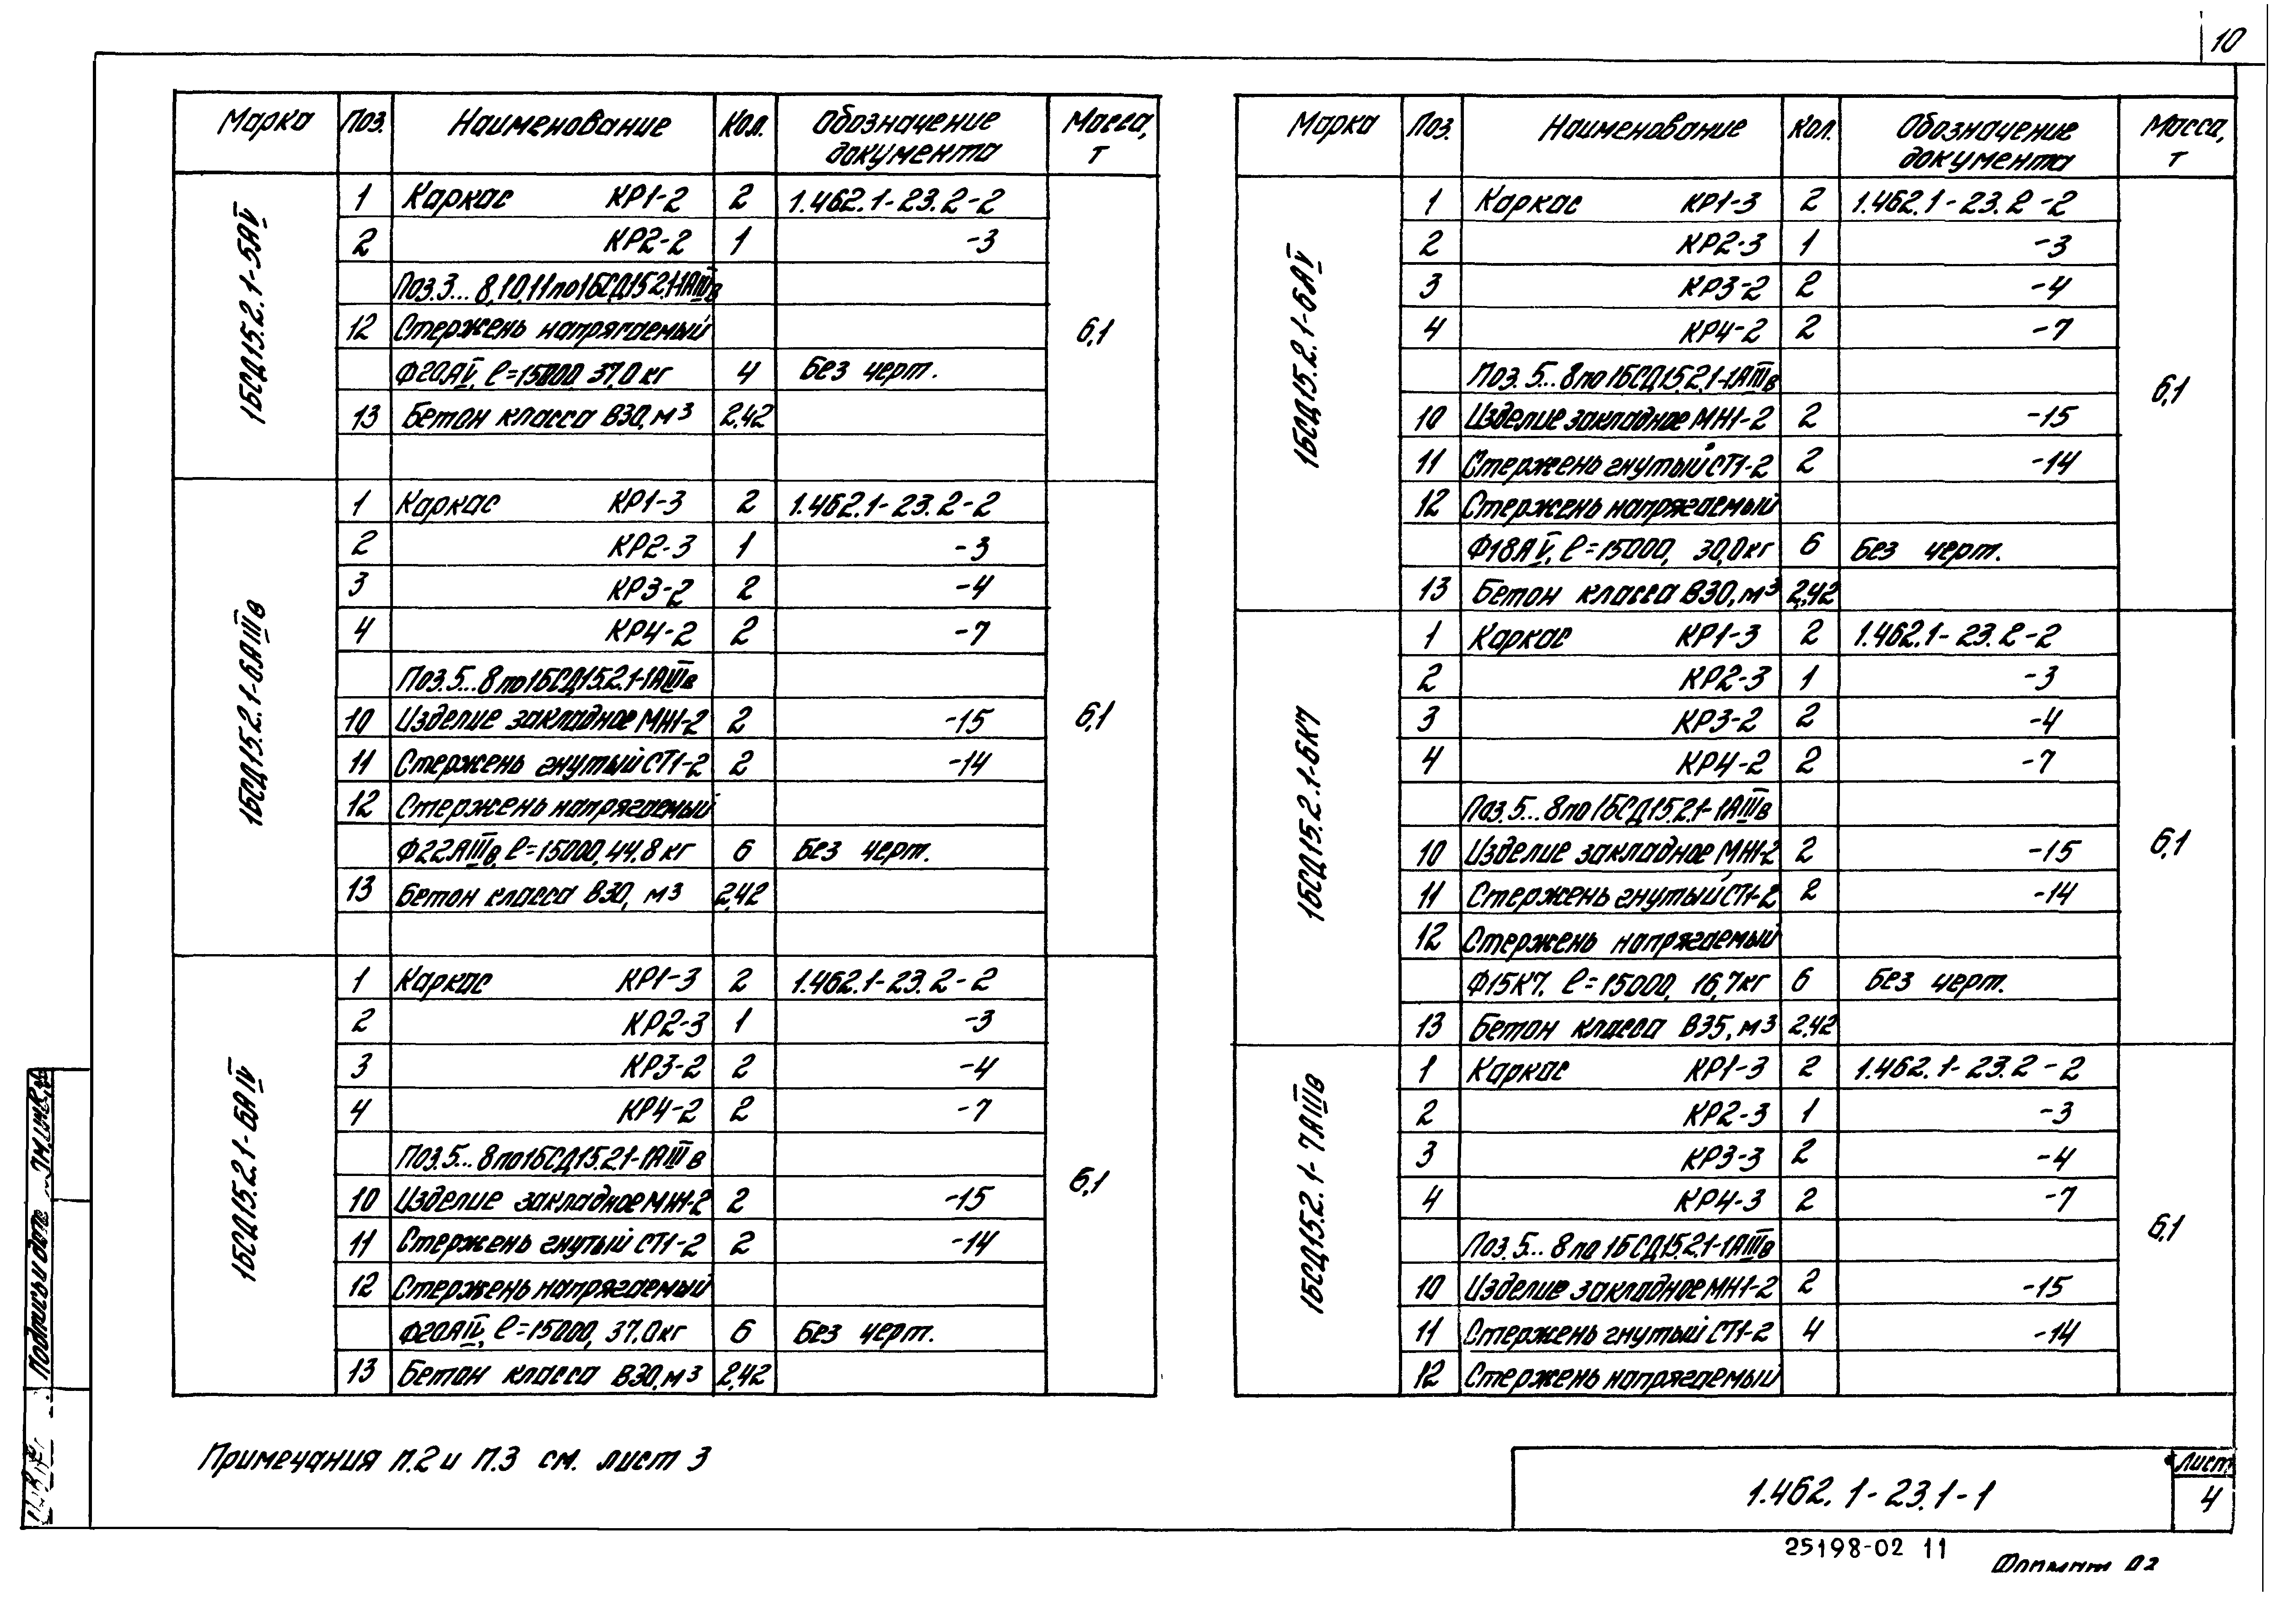 10
Марка Поз. Наименование Кол. Обозначение документа Масса, т
1БСД15.2.1-5АV
1 Каркас КР1-2 2 1.462.1-23.2-2
2 КР2-2 1 -3
Поз.3...8,10,11 по 1БСД15.2.1-1АIIIв
12 Стержень напрягаемый
6,1
Ф20АV, ℓ=15000, 37.0 кг 4 Без черт.
13 Бетон класса В30, м³ 2,42
1БСД15.2.1-6АIIIв
1 Каркас КР1-3 2 1.462.1-23.2-2
2 КР2-3 1 -3
3 КР3-2 2 -4
4 КР4-2 2 -7
Поз.5...8 по 1БСД15.2.1-1АIIIв
10 Изделие закладное МН1-2 2 -15
6,1
11 Стержень гнутый СТ1-2 2 -14
12 Стержень напрягаемый
Ф22АIIIв, ℓ=15000, 44.8 кг 6 Без черт.
13 Бетон класса В30, м³ 2,42
1БСД15.2.1-6АIV
1 Каркас КР1-3 2 1.462.1-23.2-2
2 КР2-3 1 -3
3 КР3-2 2 -4
4 КР4-2 2 -7
Поз.5...8 по 1БСД15.2.1-1АIIIв
10 Изделие закладное МН1-2 2 -15
6,1
11 Стержень гнутый СТ1-2 2 -14
12 Стержень напрягаемый
Ф20АIV, ℓ=15000, 37.0 кг 6 Без черт.
13 Бетон класса В30, м³ 2,42
Марка Поз. Наименование Кол. Обозначение документа Масса, т
1БСД15.2.1-6АV
1 Каркас КР1-3 2 1.462.1-23.2-2
2 КР2-3 1 -3
3 КР3-2 2 -4
4 КР4-2 2 -7
Поз.5...8 по 1БСД15.2.1-1АIIIв
6,1
10 Изделие закладное МН1-2 2 -15
11 Стержень гнутый СТ1-2 2 -14
12 Стержень напрягаемый
Ф18АV, ℓ=15000, 30,0 кг 6 Без черт.
13 Бетон класса В30, м³ 2,42
1БСД15.2.1-6К7
1 Каркас КР1-3 2 1.462.1-23.2-2
2 КР2-3 1 -3
3 КР3-2 2 -4
4 КР4-2 2 -7
Поз.5...8 по 1БСД15.2.1-1АIIIв
10 Изделие закладное МН1-2 2 -15
6,1
11 Стержень гнутый СТ1-2 2 -14
12 Стержень напрягаемый
Ф15К7, ℓ=15000, 16,7 кг 6 Без черт.
13 Бетон класса В35, м³ 2,42
1БСД15.2.1-7АIIIв
1 Каркас КР1-3 2 1.462.1-23.2-2
2 КР2-3 1 -3
3 КР3-3 2 -4
4 КР4-3 2 -7
6,1
Поз.5...8 по 1БСД15.2.1-1АIIIв
10 Изделие закладное МН1-2 2 -15
11 Стержень гнутый СТ1-2 4 -14
12 Стержень напрягаемый
Примечания п.2 и п.3 см. лист 3
1.462.1-23.1-1
Лист
4
25198-02 11
Формат
Подпись и дата